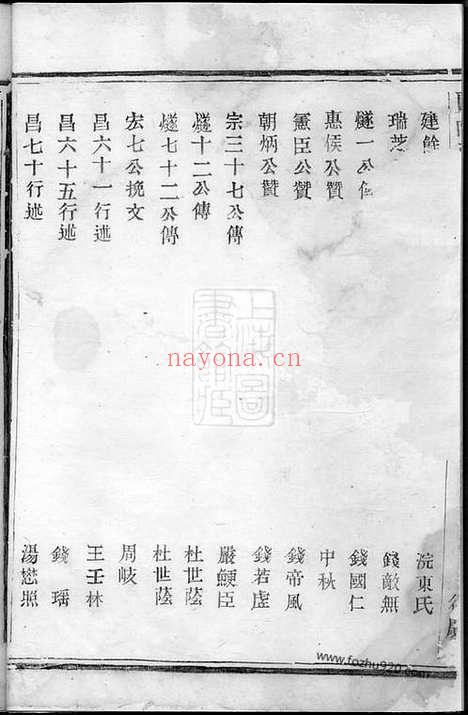 建餘 浣東氏
瑞芝 錢敵無
燧一公 錢國仁
惠侯公贊 中秋
憲臣公贊 錢帝風
朝炳公贊 錢若虛
宗三十七公傳 嚴鯁臣
燧十二公傳 杜世蔭
燧七十二公傳 杜世蔭
宏七公挽文 周岐
昌六十一行述 王壬林
昌六十五行述 錢瑤
昌七十行述 湯懋照
上海圖書館藏
nayona.cn
www.fozhu920.com